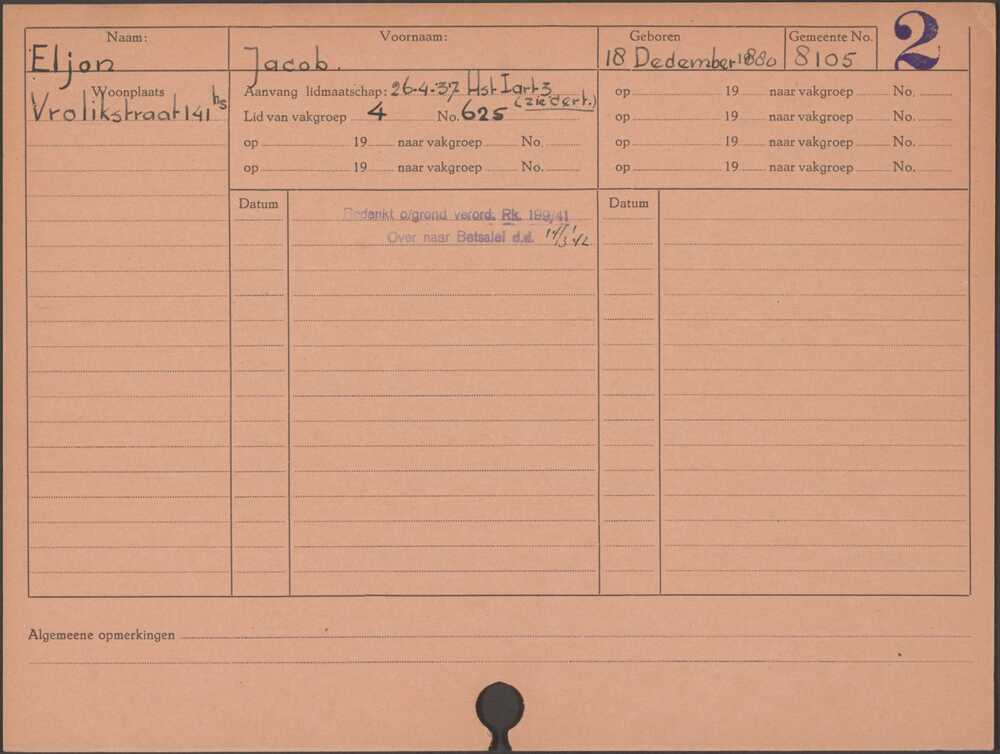 Naam: Voornaam: Geboren Gemeente No. 2
Eljon Jacob. 18 Dedember 1880 8105
Woonplaats
Vrolikstraat 141 hs
Aanvang lidmaatschap: 26-4-37 Hst I art 3
(zie dert.)
Lid van vakgroep 4 No. 625
op 19 naar vakgroep No.
op 19 naar vakgroep No.
op 19 naar vakgroep No.
op 19 naar vakgroep No.
op 19 naar vakgroep No.
op 19 naar vakgroep No.
Datum Datum
Bedankt o/grond verord. Rk. 199/41
Over naar Betsalel d.d.
Algemeene opmerkingen